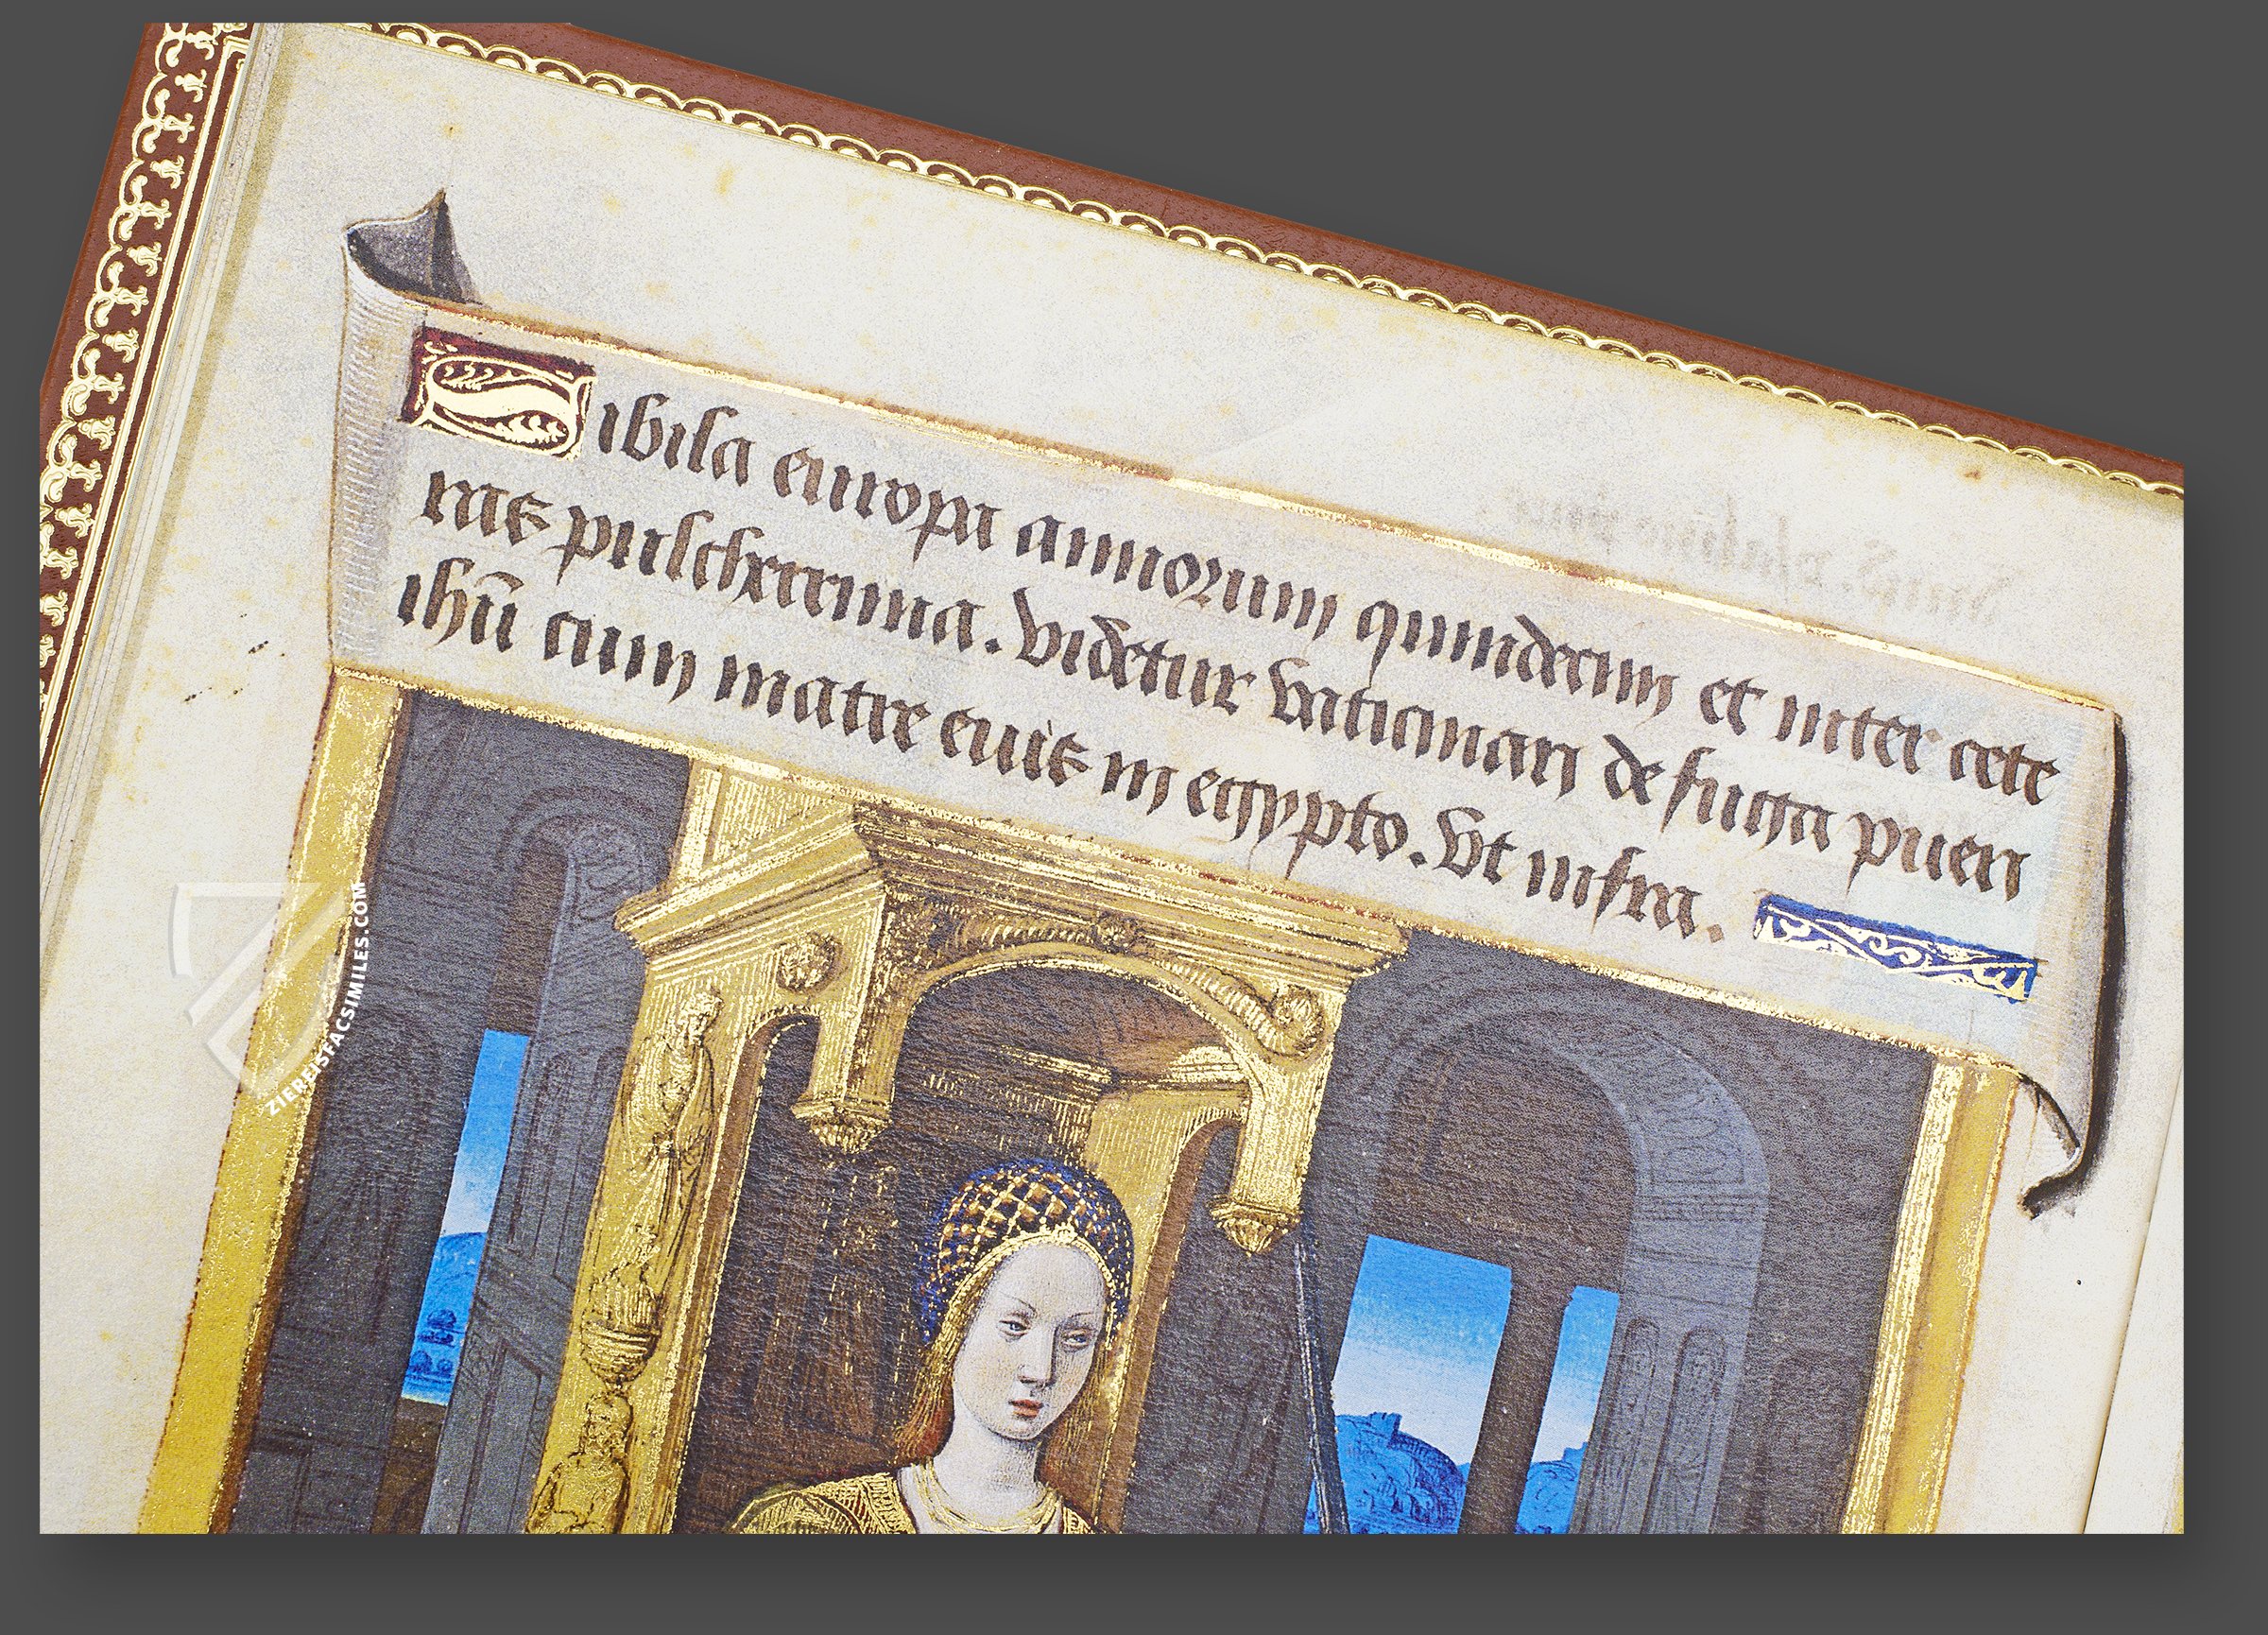 Sibila europa annorum quindecim et inter cete
ras pulcherrima. videtur vaticinari de fuga pueri
ihū cum matre eius in egypto. Vt infra.
ZIEREISFACSIMILES.COM